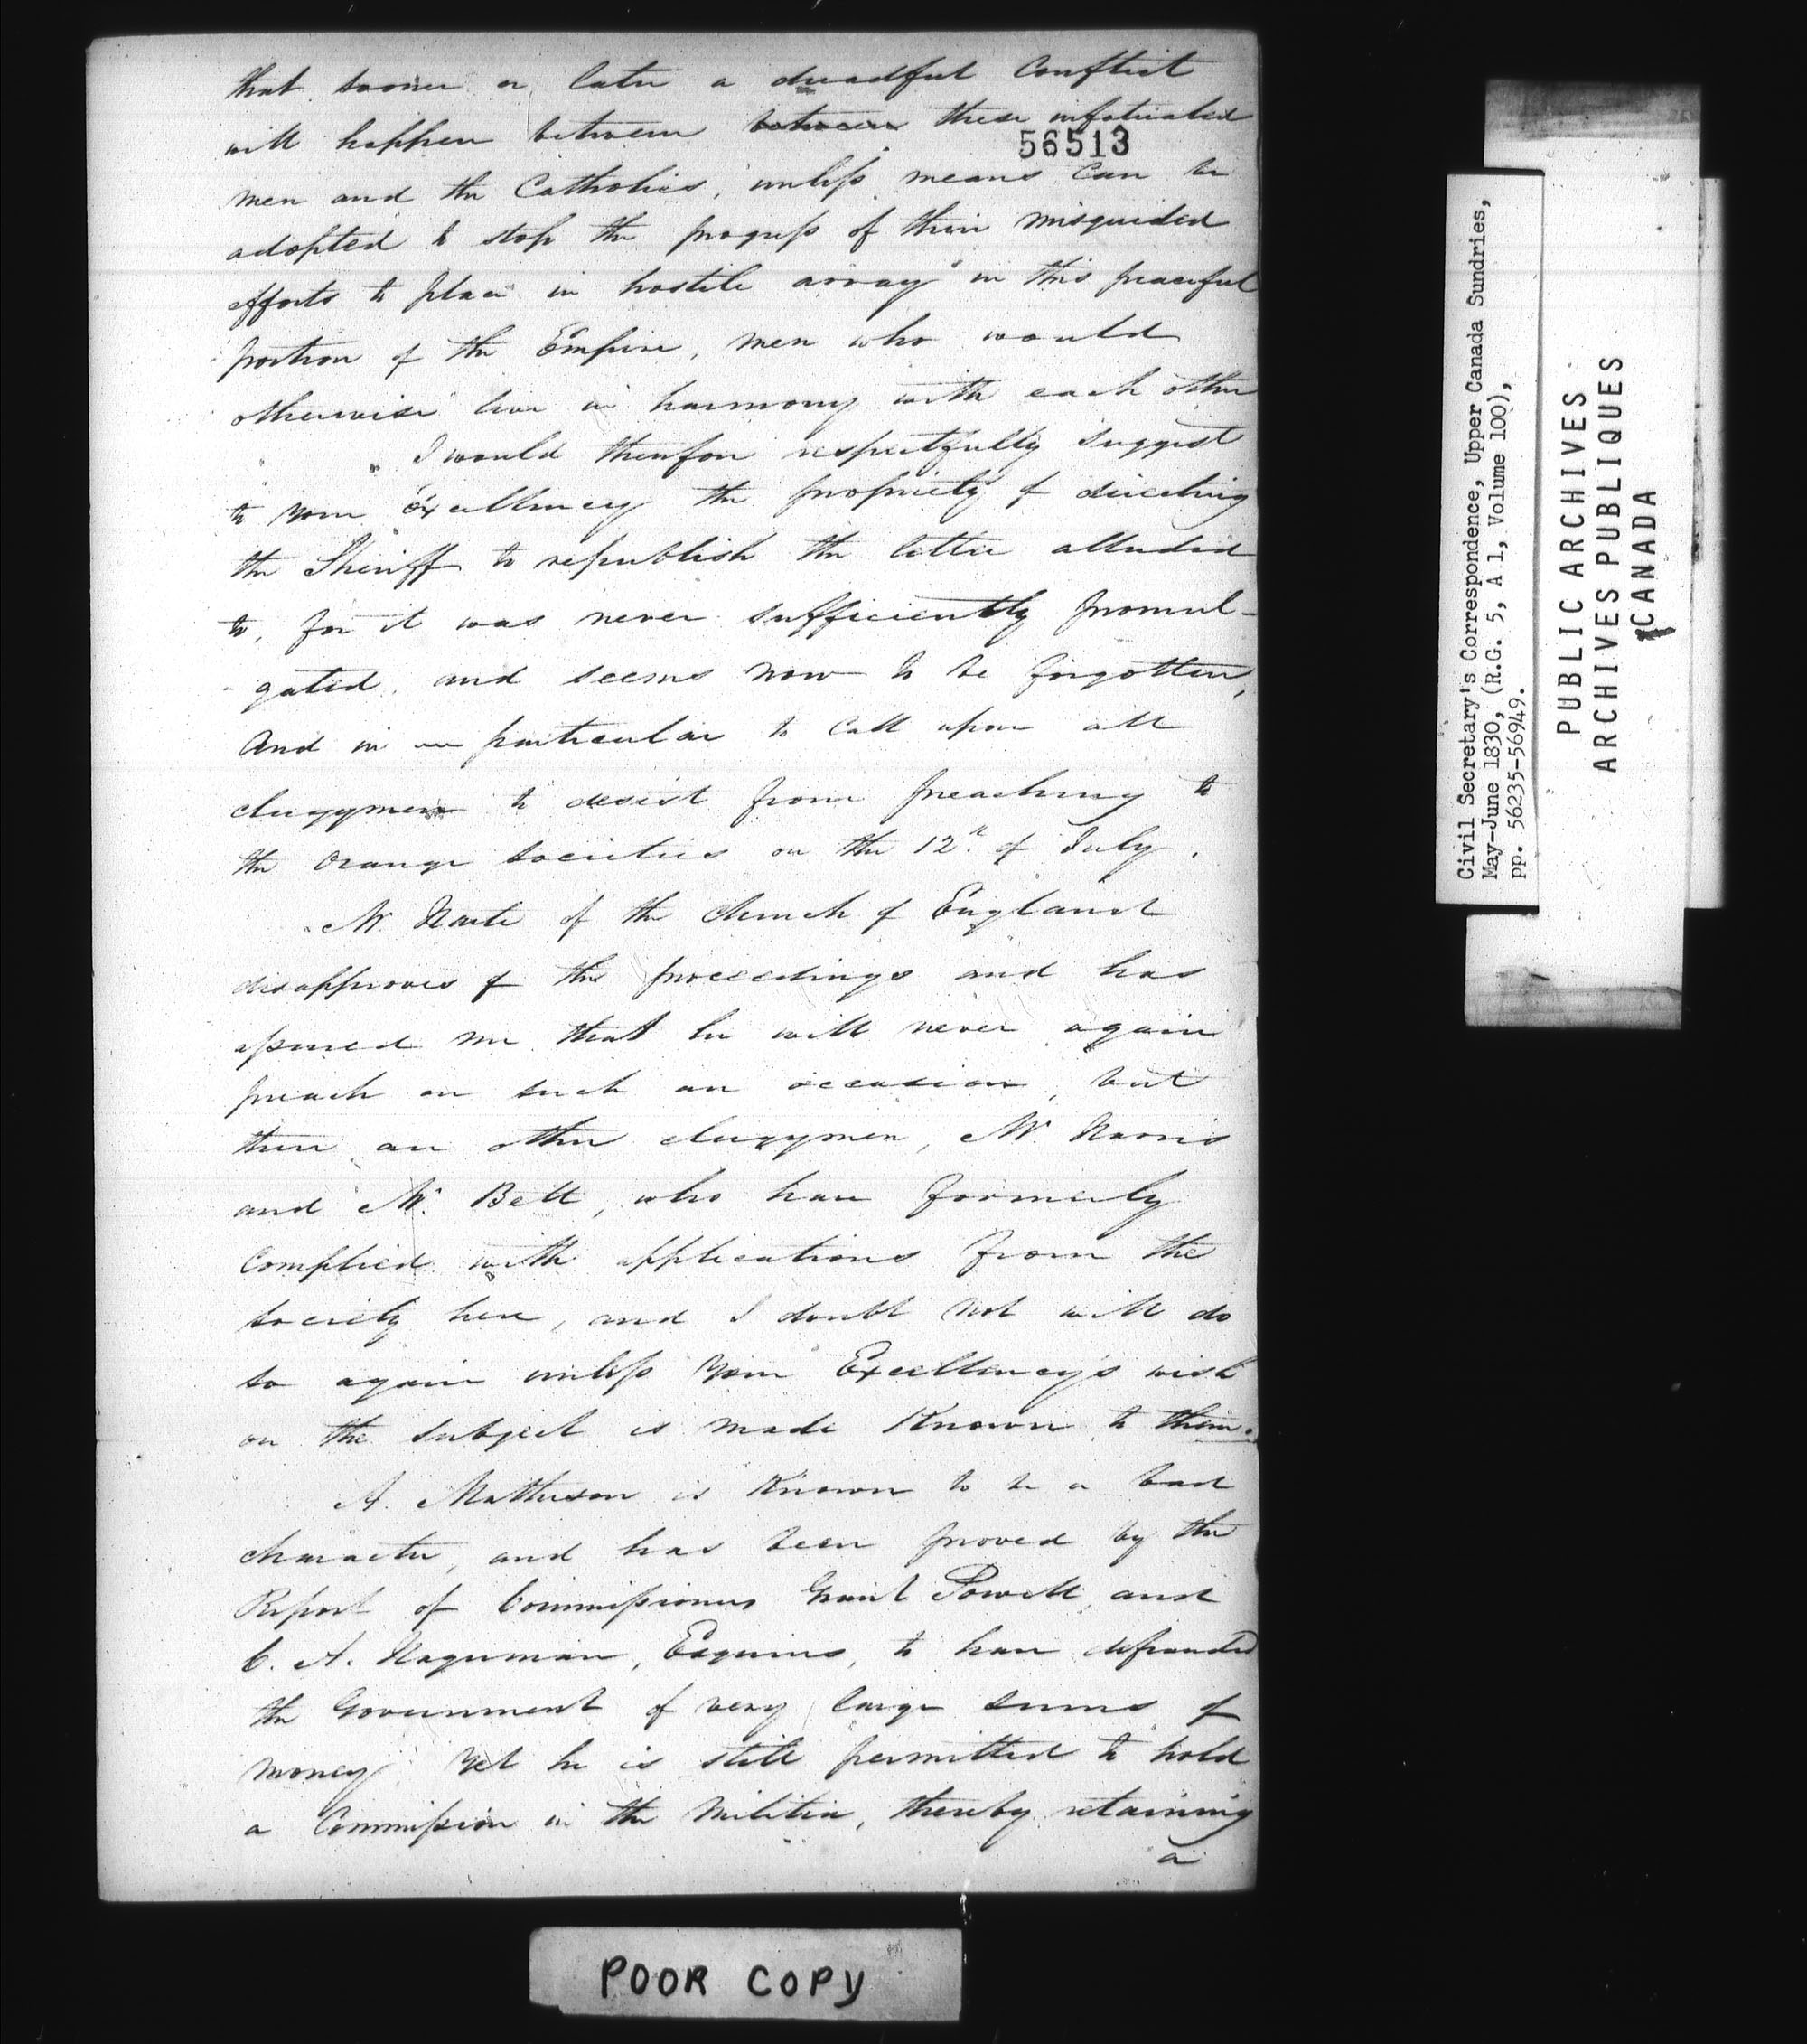 that sooner or later a dreadful Conflict
will happen between between these infatuated
56513
men and the Catholics, unless means Can be
adopted to stop the progress of their misguided
efforts to place in hostile array in this peaceful
portion of the Empire, men who would
otherwise live in harmony with each other
I would therefore respectfully suggest
to your Excellency the propriety of directing
the Sheriff to republish the letter alluded
to, for it was never sufficiently promul-
gated, and seems now to be forgotten,
And in particular to Call upon all
clergymen to desist from preaching to
the Orange Societies on the 12th of July.
Mr Harte of the Church of England
disapproves of the proceedings and has
assured me that he will never again
preach on such an occasion, but
there are other clergymen, Mr Harris
and Mr Bell, who have formerly
Complied with applications from the
Society here, and I doubt not will do
so again unless your Excellency's wish
on the subject is made Known to them.
A. Matheson is Known to be a bad
character, and has been proved by the
Report of Commissioners Grant Powell and
C. A. Hagerman, Esquires, to have defrauded
the Government of very large sums of
money Yet he is still permitted to hold
a Commission in the Militia, thereby retaining
a
POOR COPY
Civil Secretary's Correspondence, Upper Canada Sundries,
May-June 1830, (R.G. 5, A 1, Volume 100),
pp. 56235-56949.
PUBLIC ARCHIVES
ARCHIVES PUBLIQUES
CANADA